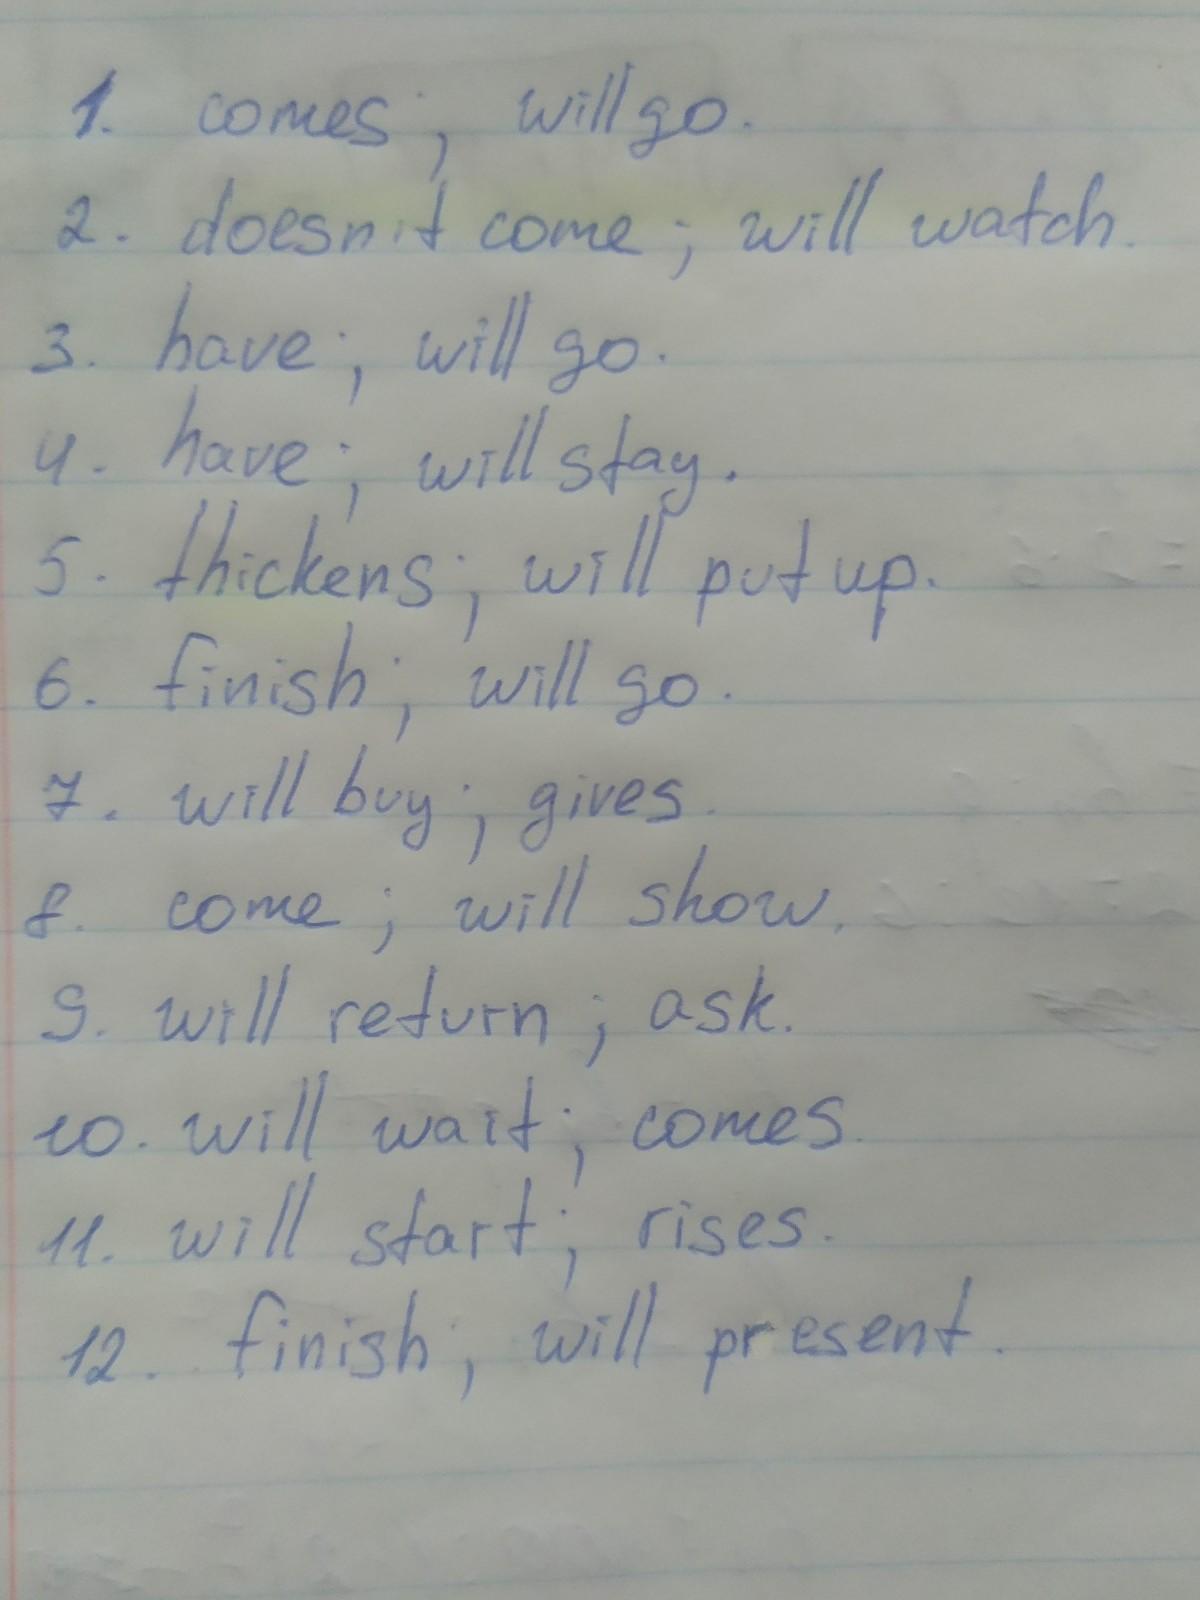 1. comes; will go.
2. doesn't come; will watch.
3. have; will go.
4. have; will stay.
5. thickens; will put up.
6. finish; will go.
7. will buy; gives.
8. come; will show.
9. will return; ask.
10. will wait; comes.
11. will start; rises.
12. finish; will present.